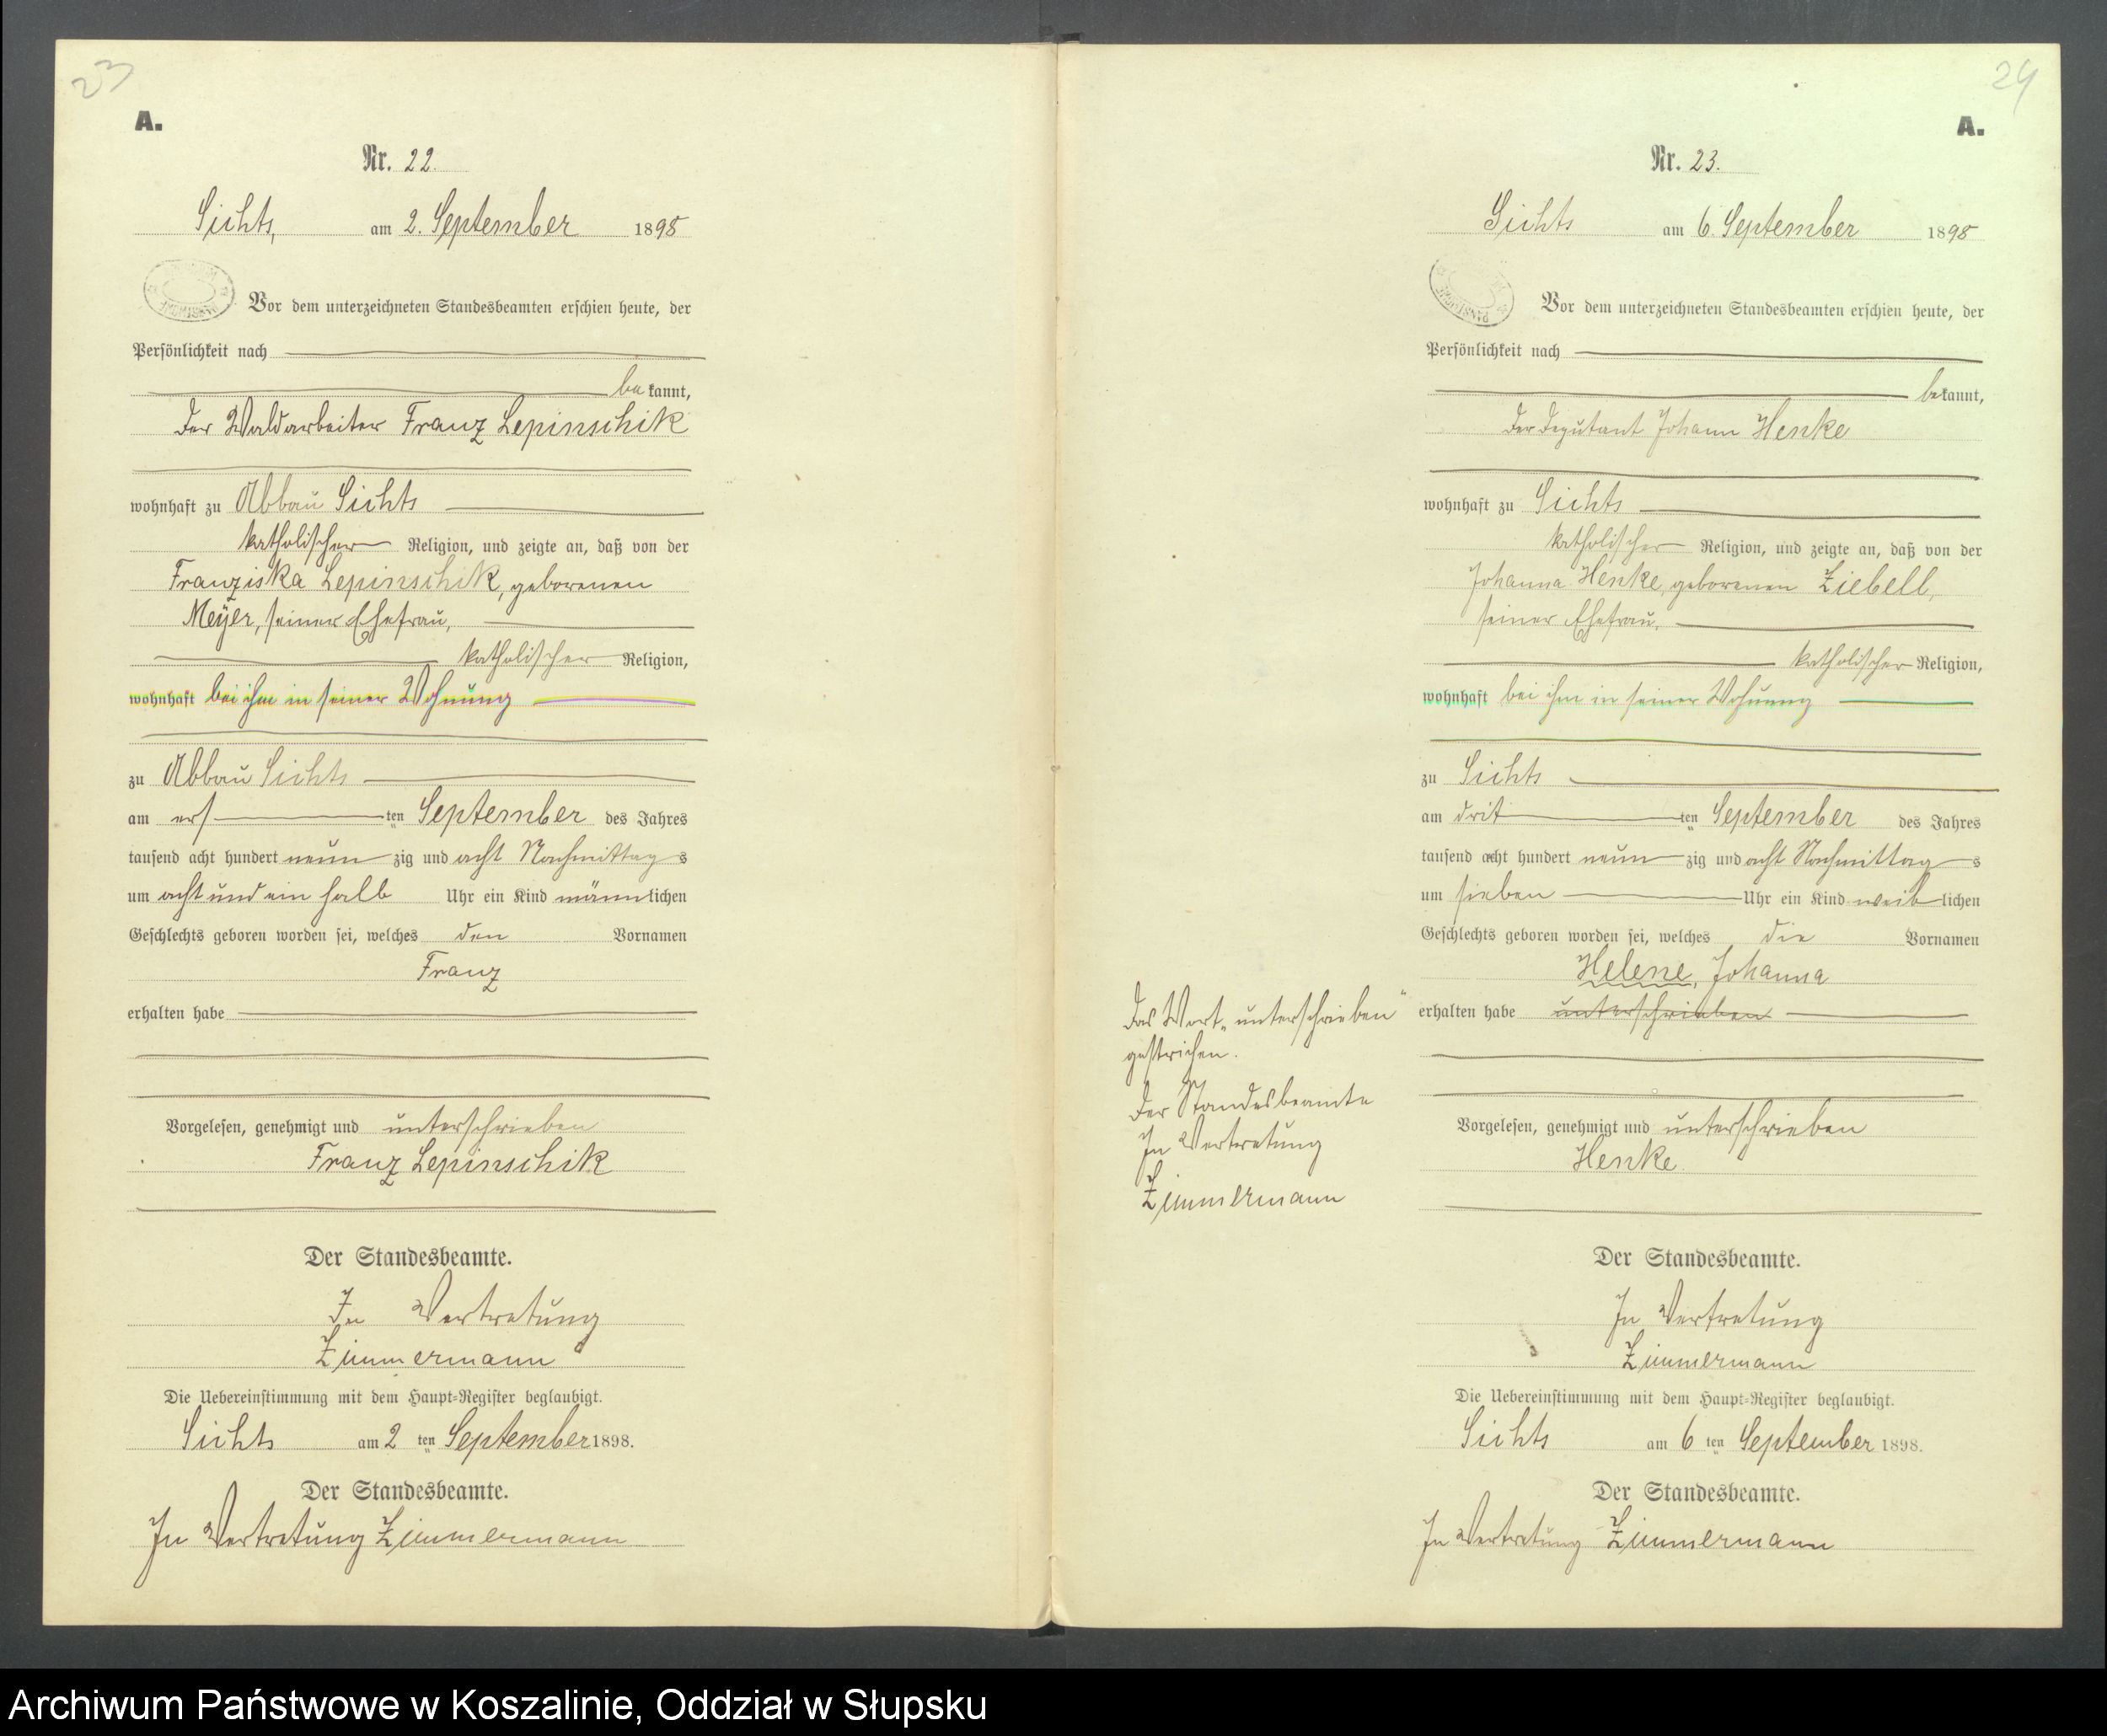 23
A.
Nr. 22.
Sichts, am 2. September 1898
Vor dem unterzeichneten Standesbeamten erschien heute, der
Persönlichkeit nach
bekannt,
der Waldarbeiter Franz Lepinschik
wohnhaft zu Abbau Sichts
katholischer Religion, und zeigte an, daß von der
Franziska Lepinschik, geborenen
Meÿer, seiner Ehefrau,
katholischer Religion,
wohnhaft bei ihm in seiner Wohnung
zu Abbau Sichts
am ersten September des Jahres
tausend acht hundert neunzig und acht Nachmittags
um acht und ein halb Uhr ein Kind männlichen
Geschlechts geboren worden sei, welches den Vornamen
Franz
erhalten habe
Vorgelesen, genehmigt und unterschrieben
Franz Lepinschik
Der Standesbeamte.
In Vertretung
Zimmermann
Die Uebereinstimmung mit dem Haupt-Register beglaubigt.
Sichts am 2ten September 1898.
Der Standesbeamte.
In Vertretung Zimmermann
24
A.
Nr. 23.
Sichts am 6. September 1898
Vor dem unterzeichneten Standesbeamten erschien heute, der
Persönlichkeit nach
bekannt,
der Deputant Johann Henke
wohnhaft zu Sichts
katholischer Religion, und zeigte an, daß von der
Johanna Henke, geborenen Ziebell,
seiner Ehefrau,
katholischer Religion,
wohnhaft bei ihm in seiner Wohnung
zu Sichts
am dritten September des Jahres
tausend acht hundert neunzig und acht Nachmittags
um sieben Uhr ein Kind weiblichen
Geschlechts geboren worden sei, welches die Vornamen
Helene, Johanna
erhalten habe unterschrieben
Das Wort „unterschrieben“
gestrichen.
Der Standesbeamte
In Vertretung
Zimmermann
Vorgelesen, genehmigt und unterschrieben
Henke.
Der Standesbeamte.
In Vertretung
Zimmermann
Die Uebereinstimmung mit dem Haupt-Register beglaubigt.
Sichts am 6ten September 1898.
Der Standesbeamte.
In Vertretung Zimmermann
Archiwum Państwowe w Koszalinie, Oddział w Słupsku